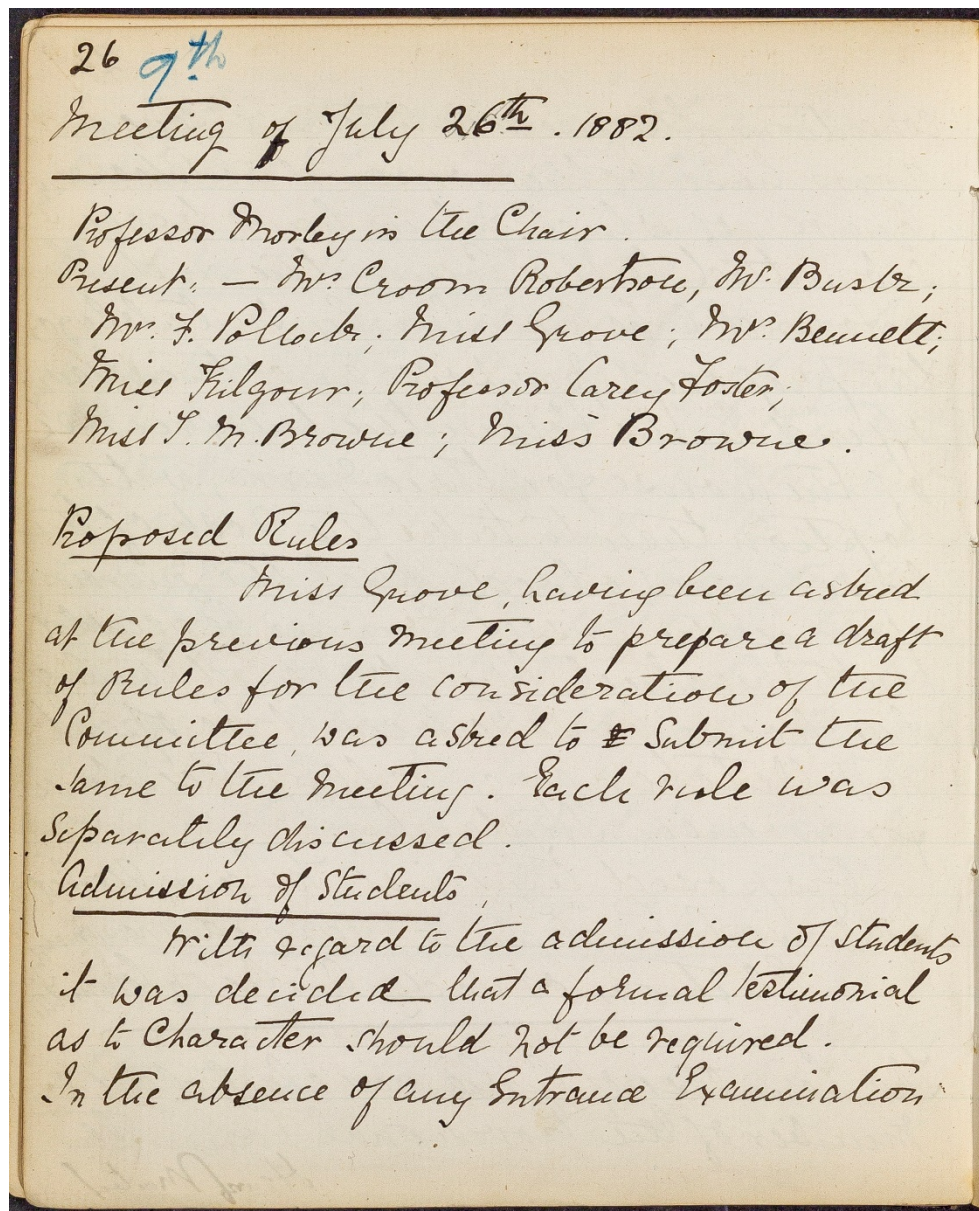 26 9th
Meeting of July 26th. 1882.
Professor Morley in the Chair.
Present: — Mrs Croom Robertson, Mr. Busk;
Mr. F. Pollock; Miss Grove; Mr. Bennett;
Miss Kilgour; Professor Carey Foster;
Miss T. M. Browne; Miss Browne.
Proposed Rules
Miss Grove, having been asked
at the previous meeting to prepare a draft
of Rules for the consideration of the
Committee, was asked to submit the
same to the Meeting. Each rule was
separately discussed.
Admission of Students,
With regard to the admission of students
it was decided that a formal testimonial
as to Character should not be required.
In the absence of any Entrance Examination